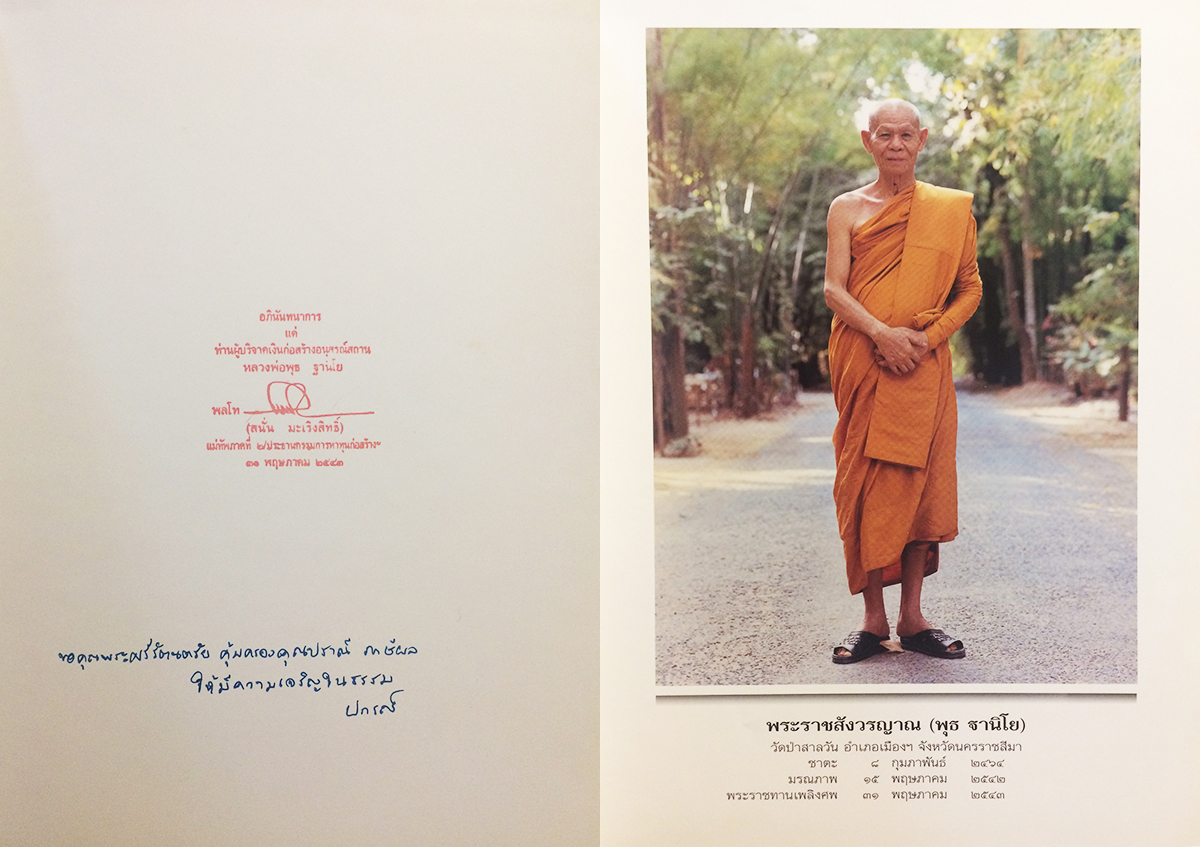 อภินันทนาการ
แด่
ท่านผู้บริจาคเงินก่อสร้างอนุสรณ์สถาน
หลวงพ่อพุธ ฐานิโย
พลโท
(สนั่น มะเริงสิทธิ์)
แม่ทัพภาคที่ ๒/ประธานกรรมการหาทุนก่อสร้างฯ
๓๑ พฤษภาคม ๒๕๔๓
ขอคุณพระศรีรัตนตรัย คุ้มครองคุณปราณี
ให้มีความเจริญในธรรม
พระราชสังวรญาณ (พุธ ฐานิโย)
วัดป่าสาลวัน อำเภอเมืองฯ จังหวัดนครราชสีมา
ชาตะ ๘ กุมภาพันธ์ ๒๔๖๔
มรณภาพ ๑๕ พฤษภาคม ๒๕๔๒
พระราชทานเพลิงศพ ๓๑ พฤษภาคม ๒๕๔๓